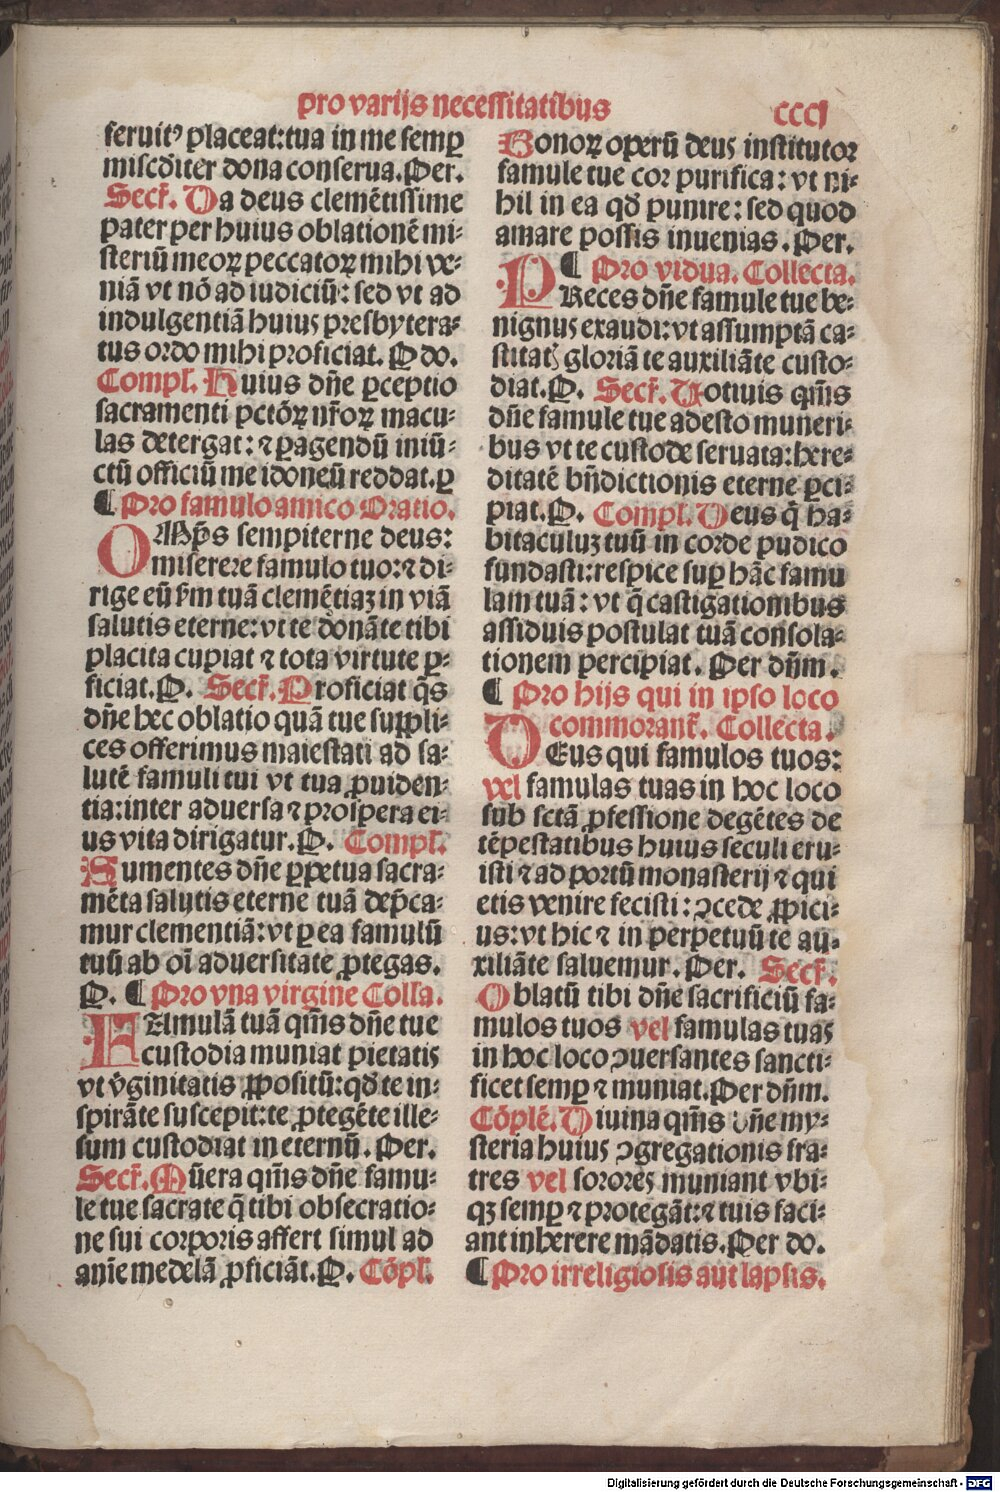 pro varijs necessitatibus
cccj
seruitꝰ placeat: tua in me semꝑ
misc̄diter dona conserua. Per.
Secr̄. Da deus clemētissime
pater per huius oblationē mi-
steriū meoꝝ peccatoꝝ mihi ve-
niā vt nō ad iudiciū: sed vt ad
indulgentiā huius presbytera-
tus ordo mihi proficiat. P do.
Compl̄. Huius dn̄e ꝑceptio
sacramenti pctōꝝ nr̄oꝝ macu-
las detergat: ⁊ ꝑagendū iniū-
ctū officiū me idoneū reddat. ꝑ
¶ Pro famulo amico Oratio.
OMp̄s sempiterne deus:
miserere famulo tuo: ⁊ di-
rige eū ẜm tuā clemētiaꝫ in viā
salutis eterne: vt te donāte tibi
placita cupiat ⁊ tota virtute ꝑ-
ficiat. P. Secr̄. Proficiat q̄s
dn̄e hec oblatio quā tue suppli-
ces offerimus maiestati ad sa-
lutē famuli tui vt tua ꝓuiden-
tia: inter aduersa ⁊ prospera ei-
us vita dirigatur. P. Compl̄.
Sumentes dn̄e ꝑpetua sacra-
mēta salutis eterne tuā dep̄ca-
mur clementiā: vt ꝑ ea famulū
tuū ab oī aduersitate ꝓtegas.
P. ¶ Pro vna virgine Colla.
FAmulā tuā qm̄s dn̄e tue
custodia muniat pietatis
vt v̄ginitatis ꝓpositū: qd̄ te in-
spirāte suscepit: te ꝓtegēte ille-
sum custodiat in eternū. Per.
Secr̄. Mūera qm̄s dn̄e famu-
le tue sacrate q̄ tibi obsecratio-
ne sui corporis affert simul ad
anīe medelā ꝓficiāt. P. Cōpl̄.
Bonoꝝ operū deus institutor
famule tue cor purifica: vt ni-
hil in ea qd̄ punire: sed quod
amare possis inuenias. Per.
¶ Pro vidua. Collecta.
PReces dn̄e famule tue be-
nignus exaudi: vt assumptā ca-
stitatꝭ gloriā te auxiliāte custo-
diat. P. Secr̄. Uotiuis qm̄s
dn̄e famule tue adesto muneri-
bus vt te custode seruata: here-
ditatē bn̄dictionis eterne ꝑci-
piat. P. Compl̄. Deus q̄ ha-
bitaculuꝫ tuū in corde pudico
fundasti: respice suꝑ hāc famu
lam tuā: vt q̄ castigationibus
assiduis postulat tuā consola-
tionem percipiat. Per dn̄m.
¶ Pro hijs qui in ipso loco
commorant̄. Collecta.
DEus qui famulos tuos:
vel famulas tuas in hoc loco
sub sctā ꝓfessione degētes de
tēpestatibus huius seculi eru-
isti ⁊ ad portū monasterij ⁊ qui
etis venire fecisti: ꝯcede ꝓpici-
us: vt hic ⁊ in perpetuū te au-
xiliāte saluemur. Per. Secr̄.
Oblatū tibi dn̄e sacrificiū fa-
mulos tuos vel famulas tuas
in hoc loco ꝯuersantes sancti-
ficet semꝑ ⁊ muniat. Per dn̄m.
Cōplē. Diuina qm̄s dn̄e my-
steria huius ꝯgregationis fra-
tres vel sorores muniant vbi-
qꝫ semꝑ ⁊ protegāt: ⁊ tuis faci-
ant inherere mādatis. Per do.
¶ Pro irreligiosis aut lapsis.
Digitalisierung gefördert durch die Deutsche Forschungsgemeinschaft - DFG